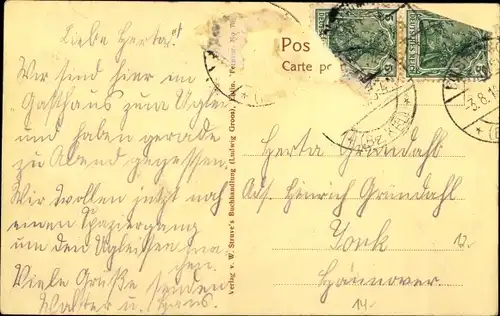 Liebe Herta!
Wir sind hier im
"Gasthaus zum Uglei"
und haben gerade
zu Abend gegessen.
Wir wollen jetzt noch
einen Spaziergang
um den Ugleisee ma-
chen.
Viele Grüße senden
Walter u. Hans.
Verlag v. W. Struve's Buchhandlung (Ludwig Groos), Eutin.
Pos
Carte po
DEUTSCHES REICH
5
5
DEUTSCHES REICH
5
5
3.8.1
Herta Grundahl
Adr. Heinrich Grundahl
York
Hannover
12.
14